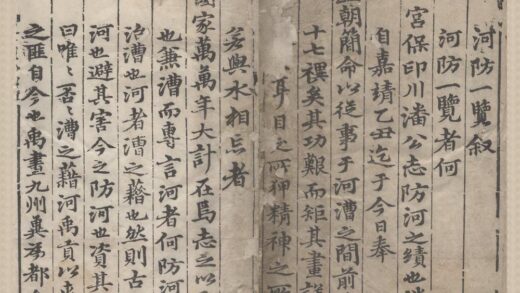 河防一覽叙
河防一覽者何
宮保印川潘公志防河之績也
自嘉靖乙丑迄于今日奉
朝簡命以從事于河漕之間前
十七禩矣其功艱而矩其畫
耳目之所狎精神之所
若與水相忘者
國家萬萬年大計在焉志之以
也兼漕而專言河者何防河
治漕也河者漕之藉也然則古
河也避其害今之防河也資其
曰唯〻否〻漕之藉河禹貢以來
之匪自今也禹畫九州冀爲都